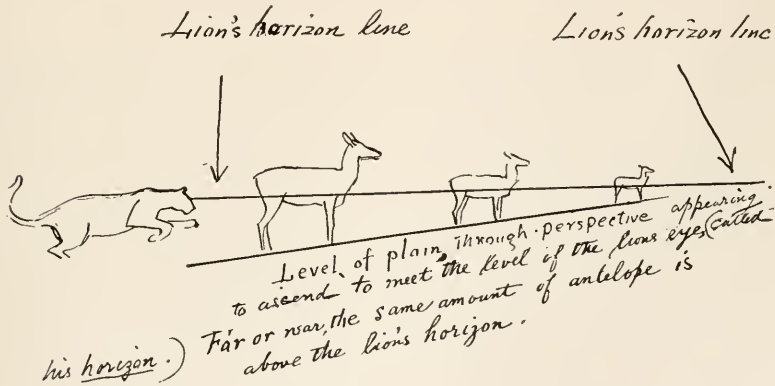 Lion's horizon line
Lion's horizon line
Level of plain, through perspective appearing
to ascend, to meet the level of the lions eye, (called
his horizon.) Far or near, the same amount of antelope is
above the lion's horizon.